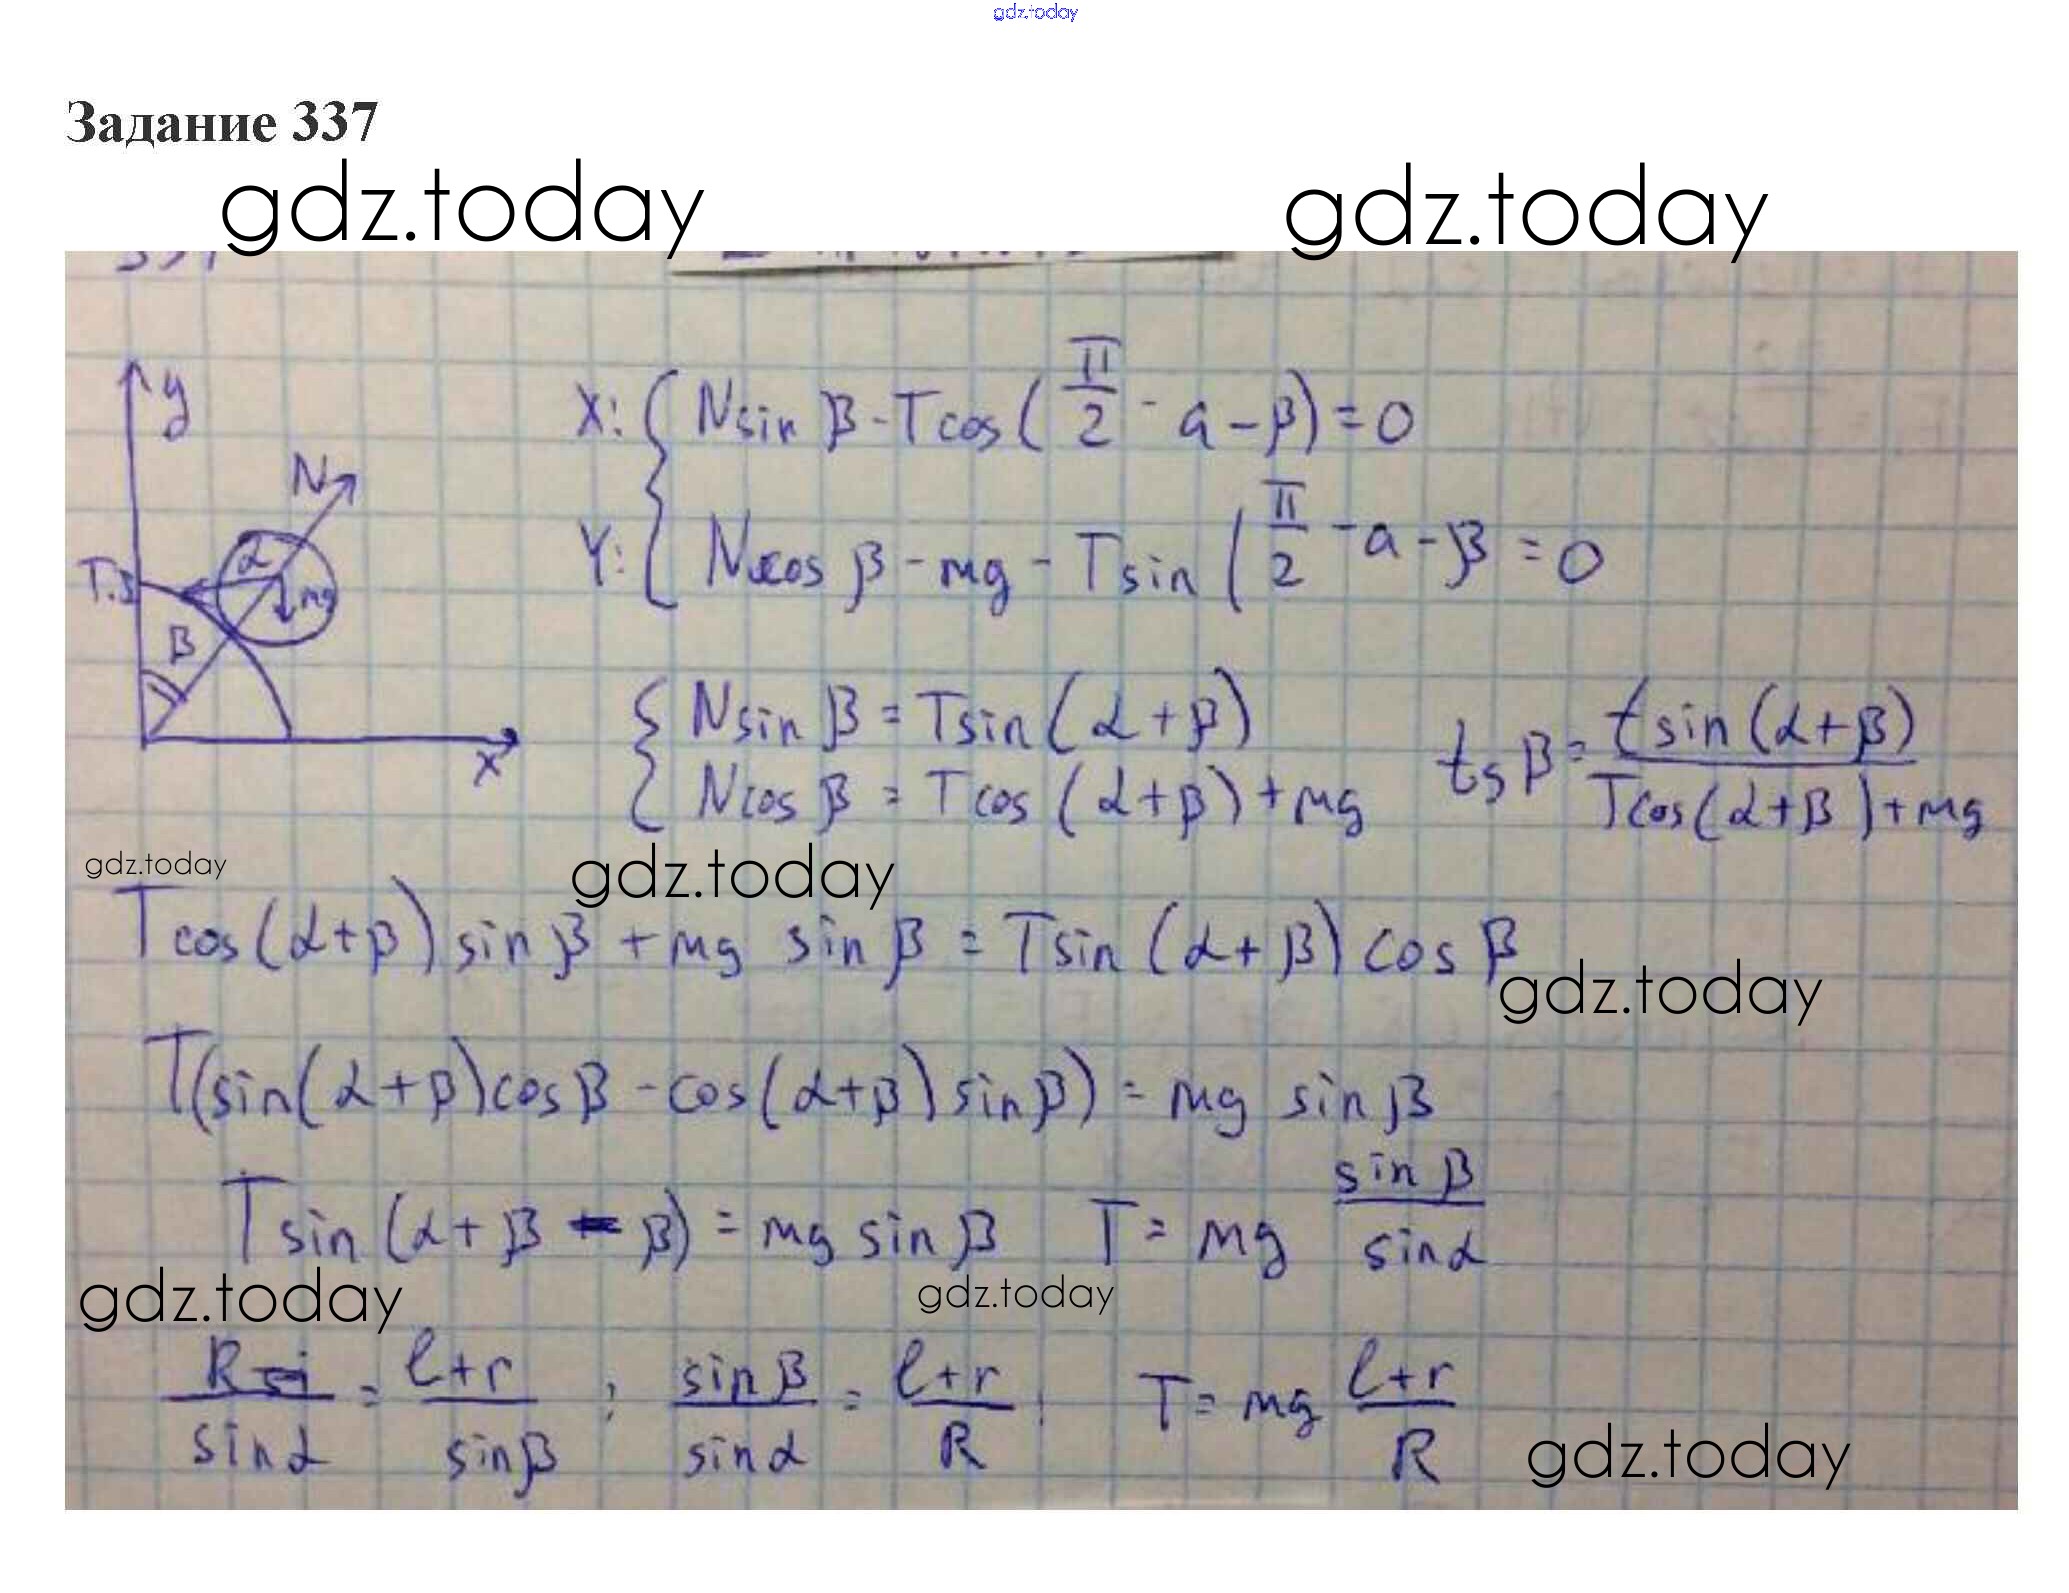 gdz.today
Задание 337
gdz.today gdz.today
337
y
N
X: { N sin β - T cos ( π/2 - a - β) = 0
Y: { N cos β - mg - T sin ( π/2 - a - β = 0
α
mg
β
x
{ N sin β = T sin (α + β)
{ N cos β = T cos (α + β) + mg
tg β = t sin (α + β) / T cos (α + β) + mg
gdz.today gdz.today
T cos (α + β) sin β + mg sin β = T sin (α + β) cos β
gdz.today
T (sin (α + β) cos β - cos (α + β) sin β) = mg sin β
T sin (α + β - β) = mg sin β T = mg sin β / sin α
gdz.today gdz.today
R / sin α = l + r / sin β ; sin β / sin α = l + r / R ; T = mg l + r / R
gdz.today